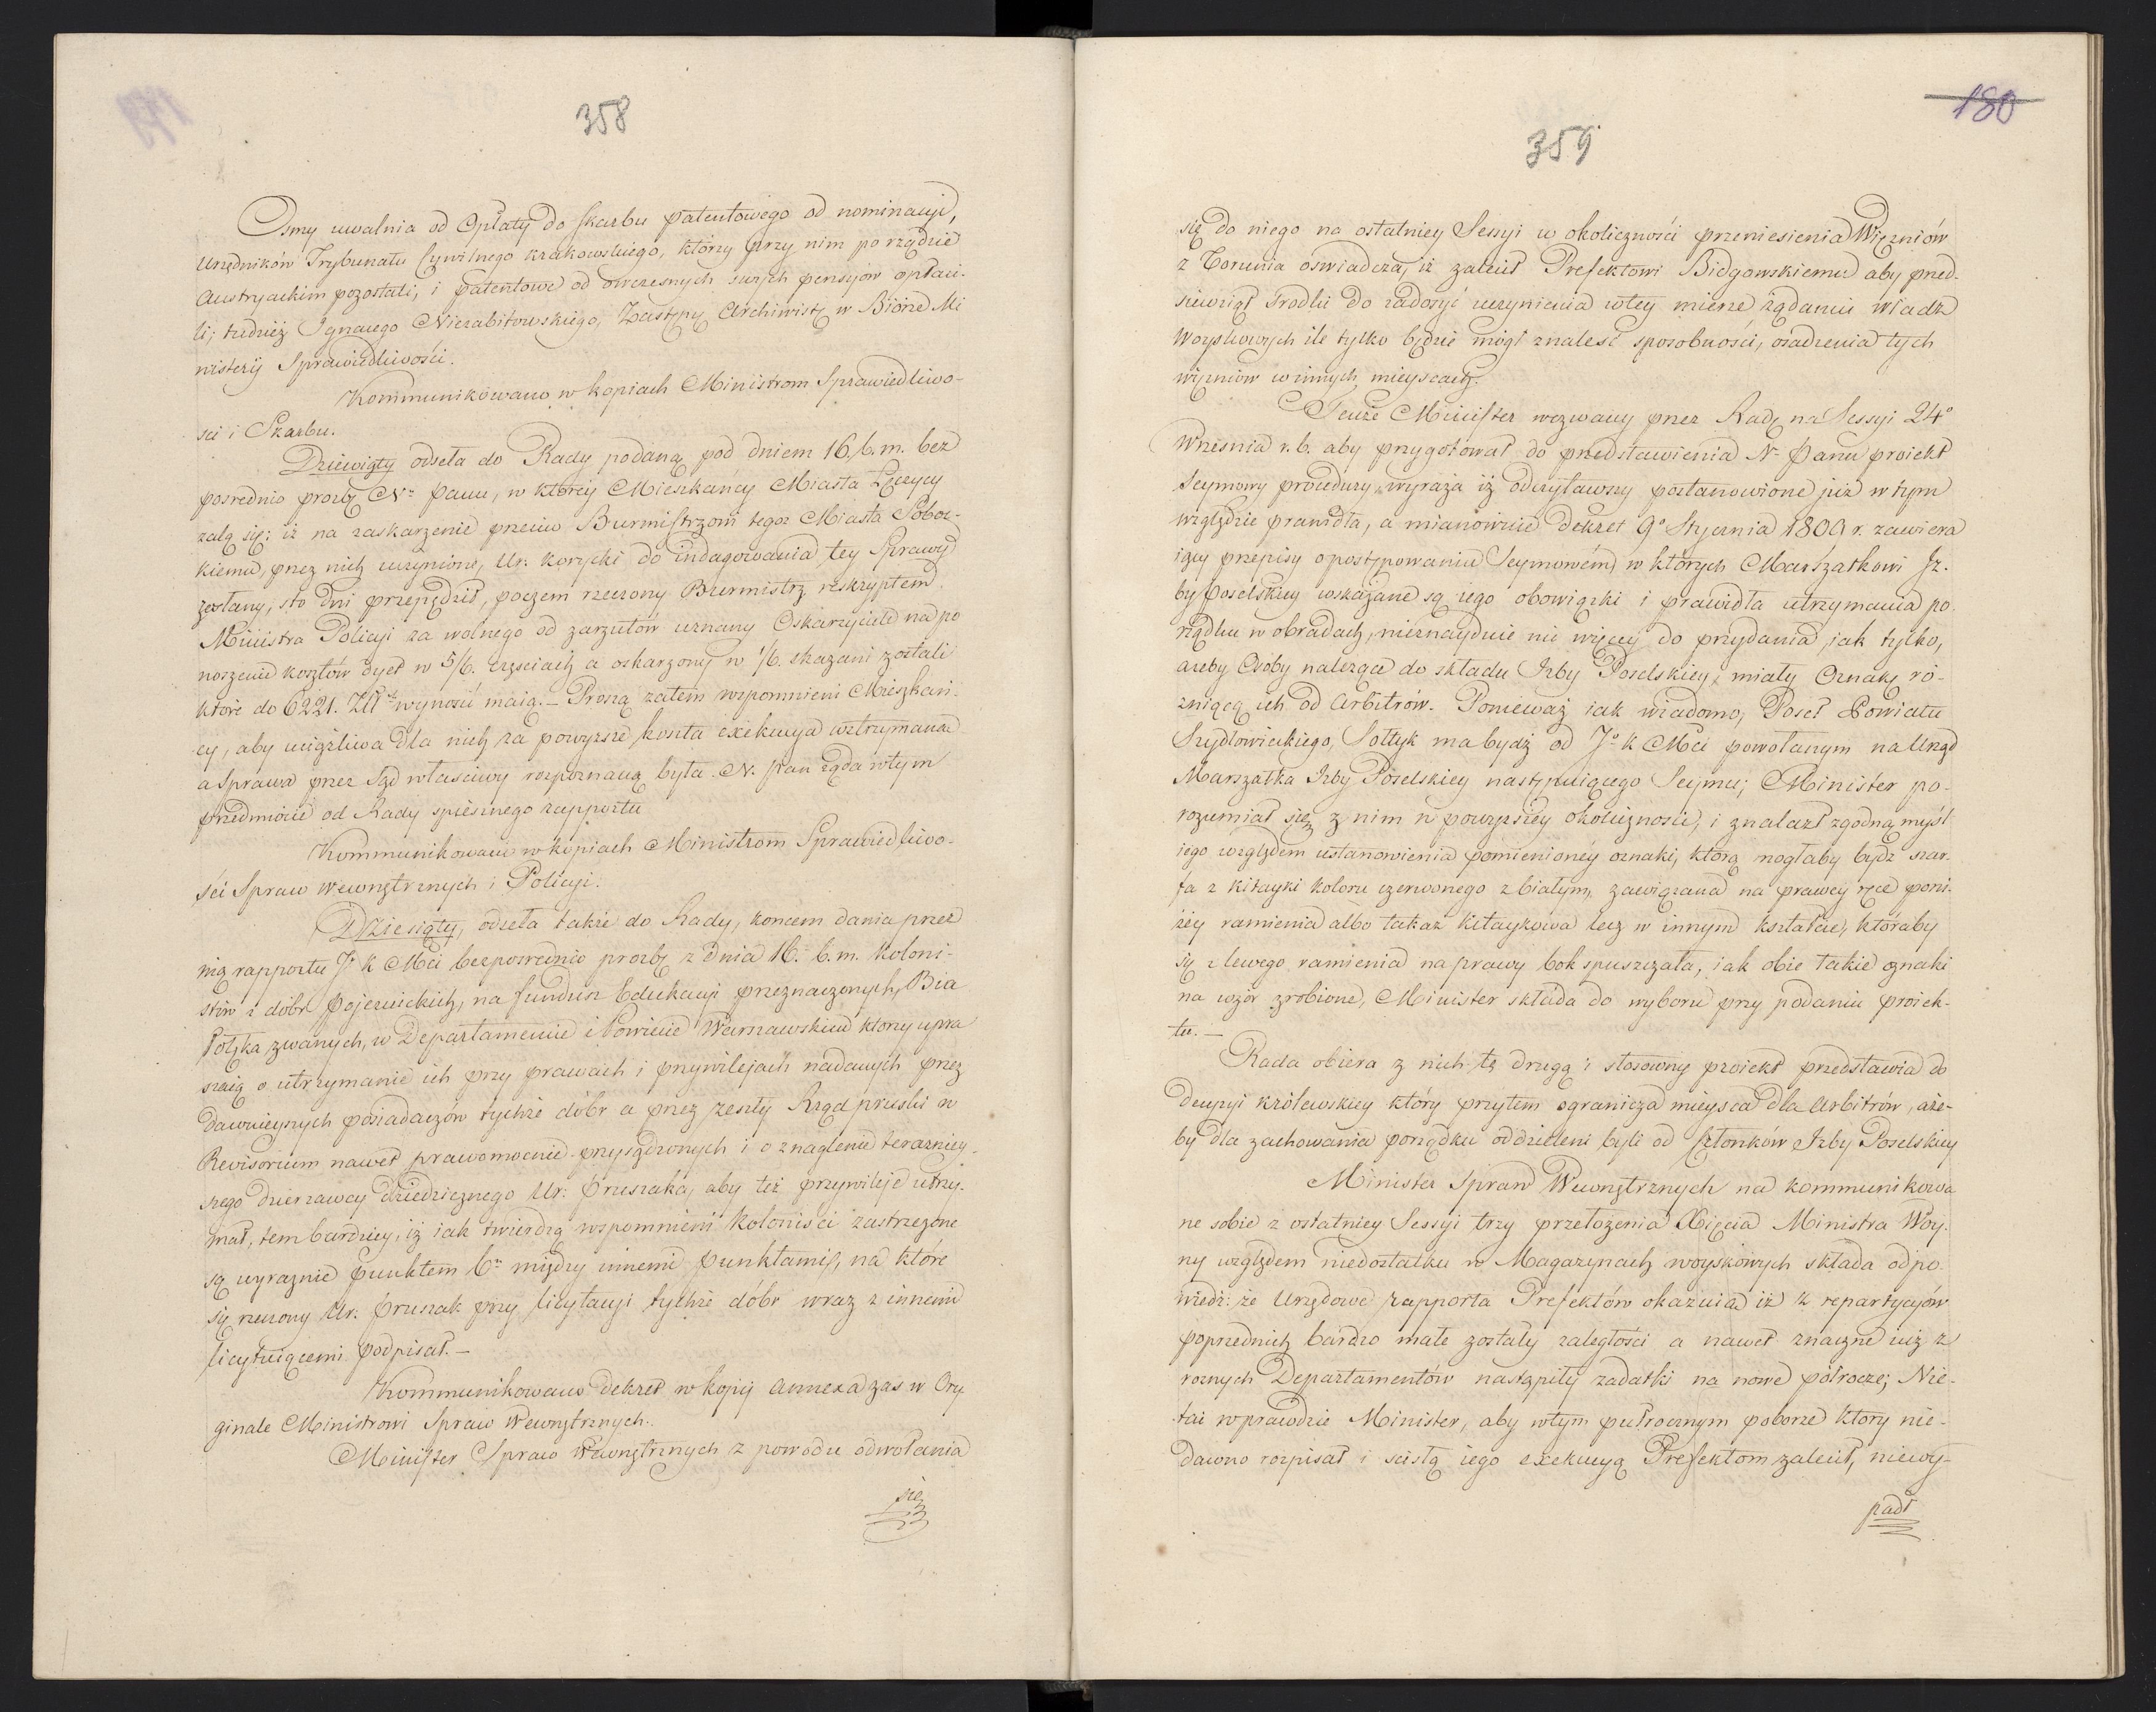 358
Osmy uwalnia od Opłaty do skarbu patentowego od nominacyi,
Urzędników Trybunału Cywilnego krakowskiego, którzy przy nim po rządzie
Austryackim pozostali, i patentowe od owczesnych swych pensyów opłaci-
li; tudzież Ignacego Niezabitowskiego, Zastępcę Archiwisty w Biórze Mi
nisteryi Sprawiedliwości.
Kommunikowano w kopiach Ministrom Sprawiedliwo-
sci i Skarbu.
Dziewiąty odseła do Rady podaną pod dniem 16. b. m. bez
posrednio prozbę Nu Panu, w którey Mieszkańcy Miasta Łęczycy
żalą się: iż na zaskarzenie przeciw Burmistrzowi tegoz Miasta Pobor-
kiemu, przez nich uczynione, Ur. Korycki do indagowania tey Sprawy
zesłany, sto dni przepędził, poczem rzeczony Burmistrz reskryptem
Ministra Policyi za wolnego od zarzutów uznany Oskarzyciele na po
noszenie kosztów dyet w 5/6. częsciach a oskarzony w 1/6. skazani zostali
które do 6221. Złł wynosić maią. – Proszą zatem wspomnieni Mieszkań-
cy, aby uciążliwa dla nich za powyższe koszta exekucya wstrzymana
a Sprawa przez Sąd własciwy rozpoznaną była. N. Pan żąda w tym
przedmiocie od Rady spiesznego rapportu
Kommunikowano w kopiach Ministrom Sprawiedliwo-
ści Spraw Wewnętrznych i Policyi.
Dziesiąty, odseła także do Rady, koncem dania przez
nią rapportu J. K Mci bezposrednio prozbę z dnia 16. b. m. Koloni-
stów z dóbr Pojezuickich, na fundusz Edukacyi przeznaczonych, Bia
łołęka zwanych, w Departamencie i Powiecie Warszawskim którzy upra
szaią o utrzymanie ich przy prawach i przywilejach nadanych przez
dawnieyszych posiadaczów tychże dóbr a przez zeszły Rząd pruski w
Revisorium nawet prawomocnie przysądzonych i o znaglenie teraźniey-
szego dzierzawcy dziedzicznego Ur: Pruszaka, aby też przywileje utrzy-
mał, tem bardziey, iż iak twierdzą wspomnieni Koloniści zastrzeżone
są wyraznie punktem 6m między innemi punktami, na które
się rzeczony Ur. Pruszak przy licytacyi tychże dóbr wraz z innemi
licytuiącemi podpisał. –
Kommunikowano dekret w kopij annexa zas w Ory
ginale Ministrowi Spraw Wewnętrznych.
Minister Spraw Wewnętrznych z powodu odwołania
się
180
359
się do niego na ostatniey Sessyi w okoliczności przeniesienia Więzniów
z Torunia oświadcza, iż zalecił Prefektowi Bidgowskiemu aby przed-
siewziął srodki do zadosyć uczynienia w tey mierze żądaniu władz
Woyskowych ile tylko będzie mógł znalesć sposobności, osadzenia tych
więzniów w innych mieyscach.
Tenże Minister wezwany przez Radę na Sessyi 24o
Wrzesnia r. b. aby przygotował do przedstawienia N. Panu proiekt
Seymowy procedury wyraża iż odczytawszy postanowione już w tym
względzie prawidła, a mianowicie dekret 9o Stycznia 1809 r. zawiera
iący przepisy o postępowaniu Seymowém w których Marszałkowi Iz-
by Poselskiey wskazane są iego obowiązki i prawidła utrzymania po-
rządku w obradach, nieznayduie nic więcey do przydania jak tylko,
ażeby Osoby należące do składu Izby Poselskiey, miały Oznakę ró-
zniącą ich od Arbitrów. Ponieważ iak wiadomo, Poseł Powiatu
Szydłowieckiego, Sołtyk ma bydź od J. K Mci powołanym na Urząd
Marszałka Izby Poselskiey następuiącego Seymu; Minister po-
rozumiał się z nim w powyższey okoliczności, i znalazł zgodną myśl
iego względem ustanowienia pomienioney oznaki, którą mogłaby bydz szar-
fa z kitayki koloru czerwonego z białym, zawiązana na prawey ręce poni-
żey ramienia albo takaż kitaykowa lecz w innym kształcie, któraby
się z lewego ramienia na prawy bok spuszczała, iak obie takie oznaki
na wzór zrobione, Minister składa do wyboru przy podaniu proiek-
tu. –
Rada obiera z nich tę drugą i stosowny proiekt przedstawia do
decyzyi królewskiey który przytem ogranicza mieysca dla Arbitrów, aże-
by dla zachowania porządku oddzieleni byli od Członków Izby Poselskiey
Minister Spraw Wewnętrznych na kommunikowa
ne sobie z ostatniey Sessyi trzy przełożenia Xięcia Ministra Woy-
ny względem niedostatku w Magazynach woyskowych składa odpo-
wiedz: że Urzędowe rapporta Prefektów okazuią iż z repartycyów
poprzednich bardzo małe zostały zaległości a nawet znaczne iuż z
roznych Departamentów nastąpiły zadatki na nowe półrocze; Nie-
tai wprawdzie Minister, aby w tym pułrocznym poborze który nie-
dawno rozpisał i scisłą iego exekucyą Prefektom zalecił, niewy-
padł